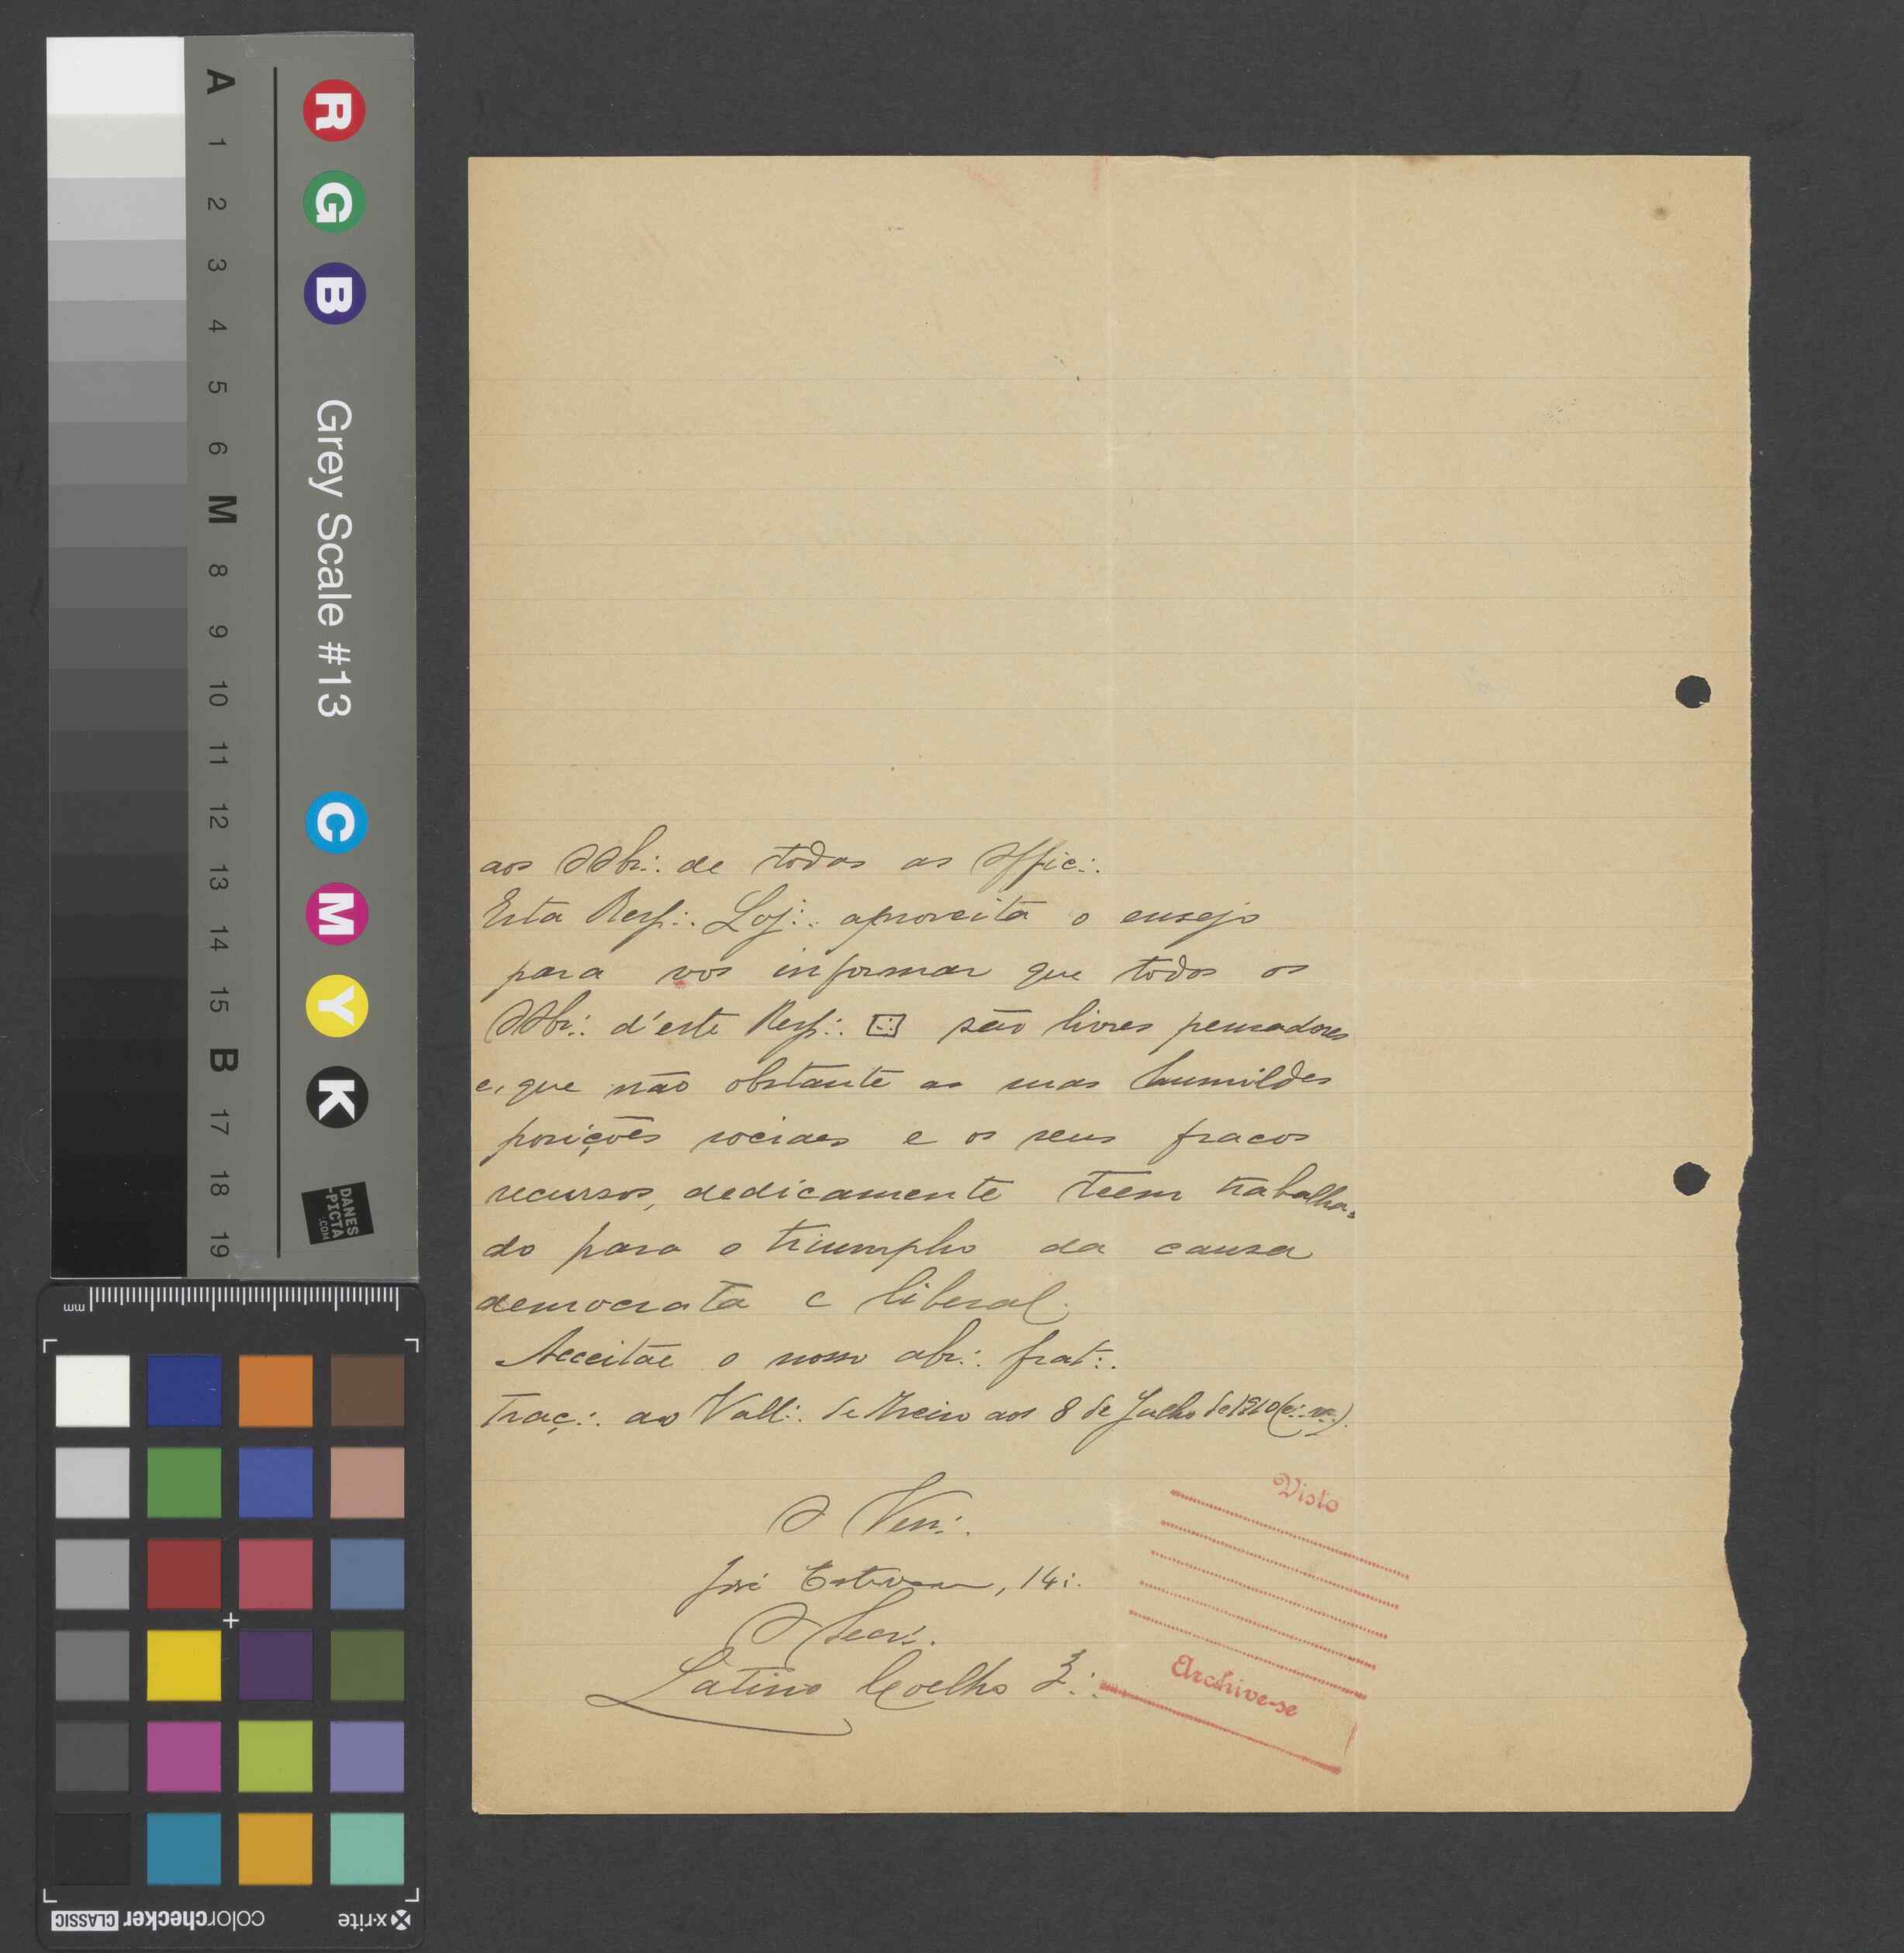 A 1 2 3 4 5 6 M 8 9 10 11 12 13 14 15 B 17 18 19
R G B Grey Scale #13 C M Y K
DANES
-PICTA
.COM
mm
x-rite colorchecker CLASSIC
aos OObr∴ de todas as Offic∴
Esta Resp∴ Loj∴ aproveita o ensejo
para vos informar que todos os
OObr∴ d'este Resp∴ [∴] são livres pensadores
e, que não obstante as suas humildes
posições sociaes e os seus fracos
recursos, dedicamente teem trabalha-
do para o triumpho da causa
democrata e liberal.
Acceitae o nosso abr∴ frat∴
Traç∴ ao Vall∴ de Aveiro aos 8 de Julho de 1910 (e∴ v∴).
O Ven∴
José Estevam, 14∴
O Secr∴
Latino Coelho 3∴
Visto
Archive-se